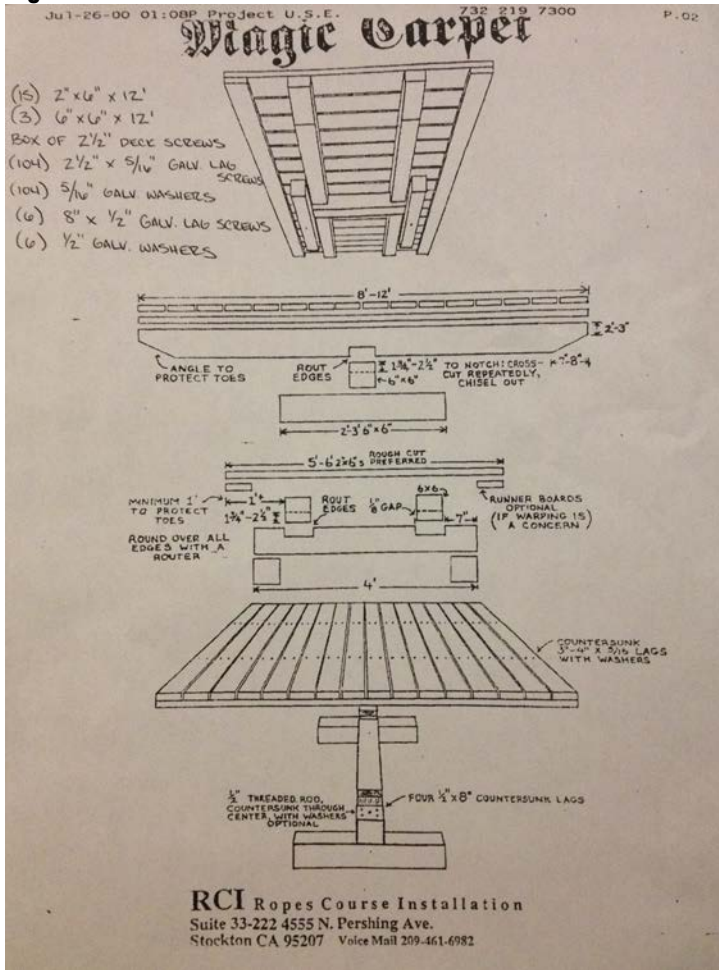 Jul-26-00 01:08P Project U.S.E. 732 219 7300 P.02
Magic Carpet
(15) 2"x6" x 12'
(3) 6"x6" x 12'
BOX OF 2½" DECK SCREWS
(104) 2½" x 5/16" GALV. LAG
SCREWS
(104) 5/16" GALV. WASHERS
(6) 8" x ½" GALV. LAG SCREWS
(6) ½" GALV. WASHERS
8'-12'
2'-3"
ANGLE TO
PROTECT TOES
ROUT
EDGES
1¾"-2½"
6"x6"
TO NOTCH: CROSS-
CUT REPEATEDLY,
CHISEL OUT
7"-8"-4
2'-3' 6"x6"
5'-6' 2"x6"s ROUGH CUT
PREFERRED
MINIMUM 1'
TO PROTECT
TOES
1'+
1¾"-2½"
ROUT
EDGES
⅛" GAP
6x6
7"
RUNNER BOARDS
OPTIONAL
(IF WARPING IS
A CONCERN)
ROUND OVER ALL
EDGES WITH A
ROUTER
4'
COUNTERSUNK
3"-4" x 5/16 LAGS
WITH WASHERS
½" THREADED ROD,
COUNTERSUNK THROUGH
CENTER, WITH WASHERS
OPTIONAL
FOUR ½"x8" COUNTERSUNK LAGS
RCI Ropes Course Installation
Suite 33-222 4555 N. Pershing Ave.
Stockton CA 95207 Voice Mail 209-461-6982